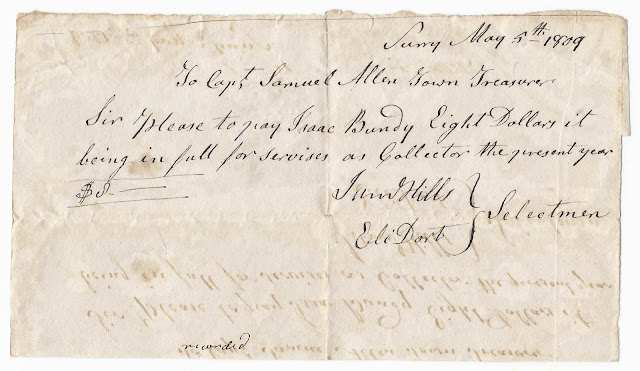 Surry May 5th 1809
To Capt Samuel Allen Town Treasurer
Sir Please to pay Isaac Bundy Eight Dollars it
being in full for servises as Collector the present year
$8
Hills
Eli Dort
Selectmen
recorded